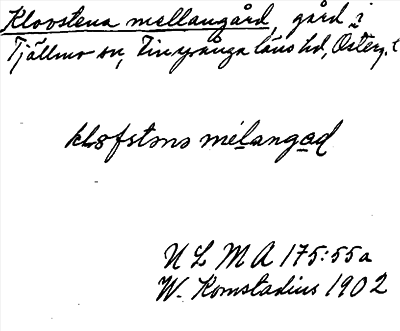 Kloostena mellangård, gård i
Tjällmo sn, Finspånga läns hd, Österg.
kləfstənə mélangad
U L M A 175:55a
W. Komstadius 1902